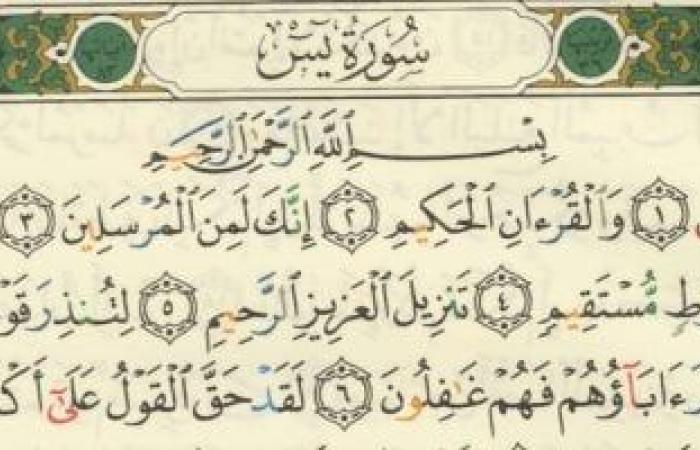 سُورَةُ يسٓ
بِسْمِ ٱللَّهِ ٱلرَّحْمَٰنِ ٱلرَّحِيمِ
١ وَٱلْقُرْءَانِ ٱلْحَكِيمِ ٢ إِنَّكَ لَمِنَ ٱلْمُرْسَلِينَ ٣
طٍ مُّسْتَقِيمٍ ٤ تَنزِيلَ ٱلْعَزِيزِ ٱلرَّحِيمِ ٥ لِتُنذِرَ قَوْ
ءَابَآؤُهُمْ فَهُمْ غَٰفِلُونَ ٦ لَقَدْ حَقَّ ٱلْقَوْلُ عَلَىٰٓ أَكْ